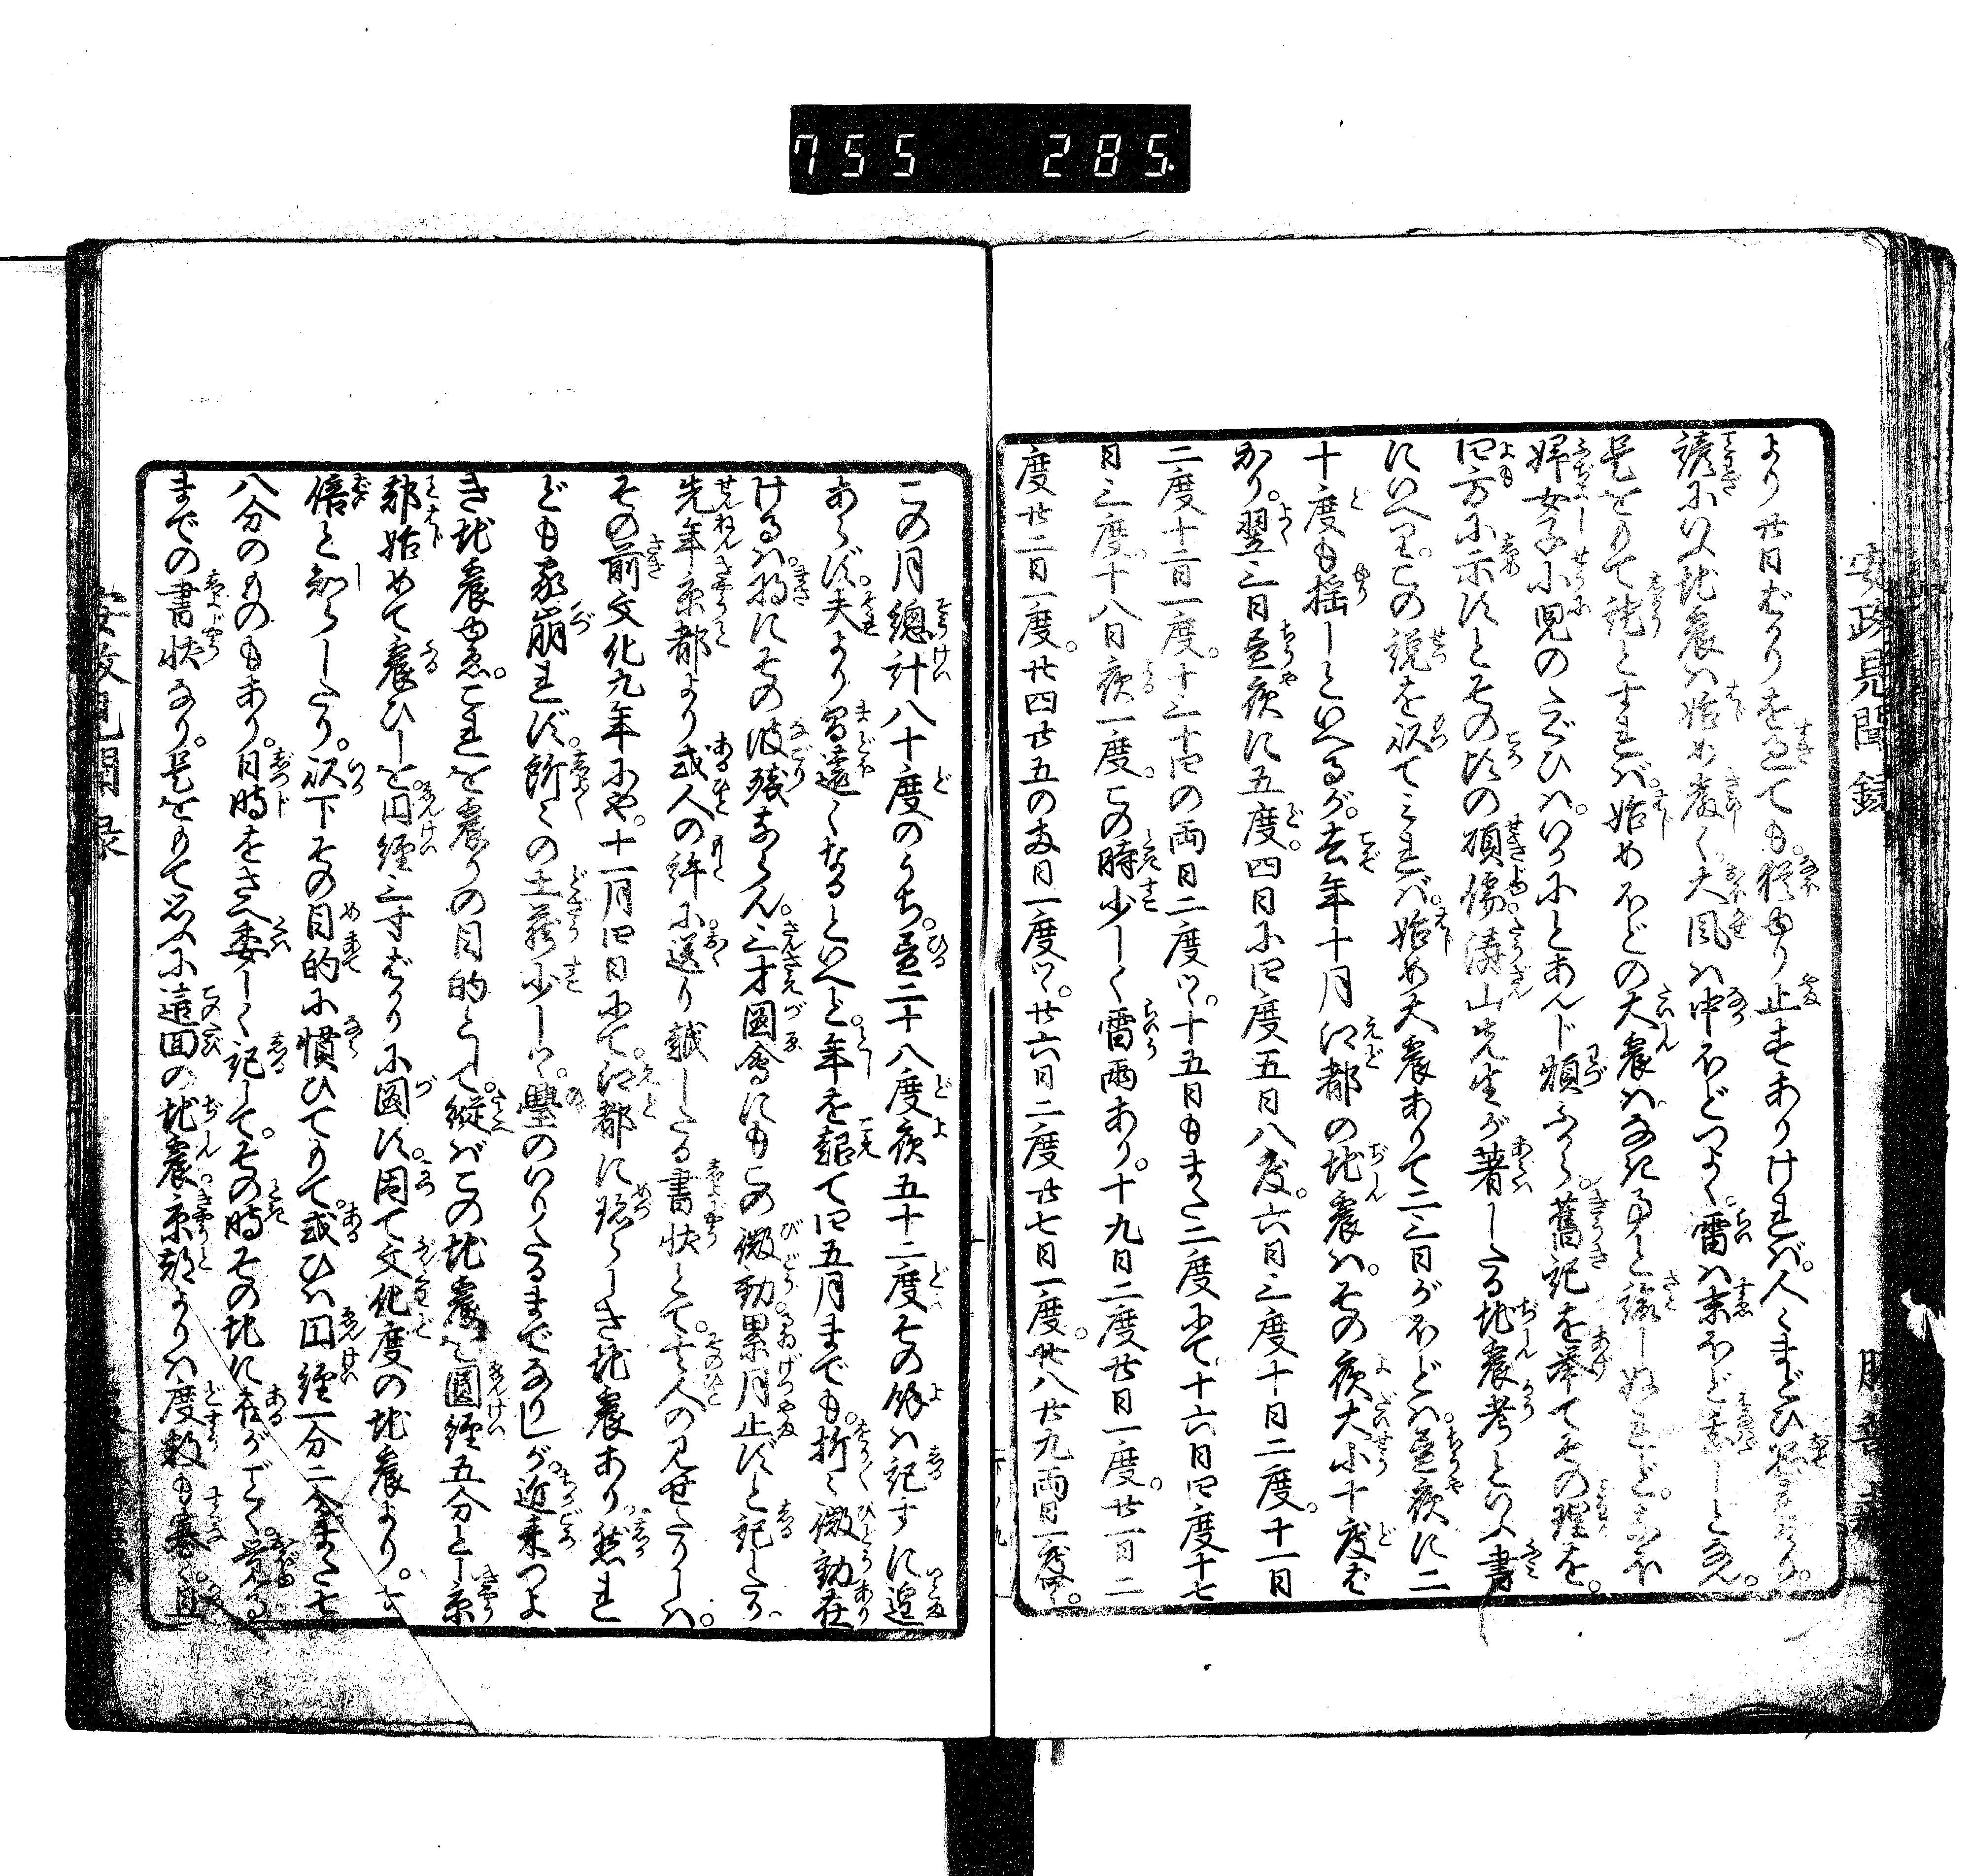 755 285.
安政見聞録
より廿日ばかりを過ても。猶ゆり止ずありければ。人〻まどひ恐れけり。
諺にいふ地震は始め教く大風は中ほどつよく。雷は末ほど甚しとなん。
是をもて証とすれば。始めほどの大震はなき事と諭しぬれど。なほ
婦女子小児のたぐひは。いかにとあんじ煩ふから。舊記を挙てその理を
四方に示すとその頃の碩儒。濤山先生が著したる地震考といふ書
にいへり。この説を以てみれば。始め大震ありて二三日がほどは。昼夜に二
十度も揺しといへるが。去年十月江都の地震は。その夜大小十度ば
かり。翌三日昼夜に五度。四日に四度五日八度。六日三度十日二度。十一日
二度十二日一度。十三十四の両日二度ツヽ。十五日もまた二度にて。十六日四度十七
日三度。十八日夜一度。この時少しく雷雨あり。十九日二度廿日一度。廿一日二
度廿二日一度。廿四廿五の両日一度ツヽ。廿六日二度廿七日一度。廿八廿九両日一度ツヽ。
この月總計八十度のうち。昼二十八度夜五十二度その餘は記すに遑
あらず。夫より間遠くなるといへど。年を超て四五月までも。折〻微動在
けるは。将にその波残ならん。三才圖會にもこの微動累月止ずと記したり。
先年京都より或人の許に送り越したる書状とて。その人の見せたりしは。
その前文化九年にや。十一月四日にて。江都に珍らしき地震あり。然れ
ども家崩れず。所〻の土蔵少しツヽ。壁のいりたるまでなりしが。近来つよ
き地震ゆゑ。これを震りの目的として。縦ばこの地震を圓経五分とし京
都始めて震ひしを。円経三寸ばかりに圖す。因て文化度の地震より。六
倍と知らしたり。以下その目的に慣ひてもて。或ひは円経一分二分また七
八分のものもあり。日時をさへ委しく記して。その時その地に在がごとく。覚る
までの書状なり。是をもて思ふに這回の地震。京都よりは度数も寡く。且
安政見聞録